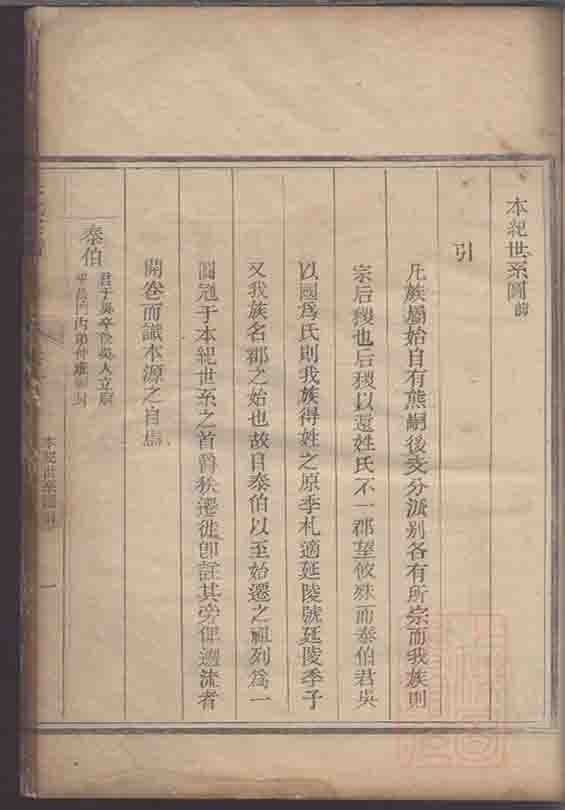 本紀世系圖前
引
凡族屬始自有熊嗣後支分派别各有所宗而我族則
宗后稷也后稷以還姓氏不一郡望攸殊而泰伯君吳
以國為氏則我族得姓之原季札適延陵號延陵季子
又我族名郡之始也故自泰伯以至始遷之祖列為一
圖冠于本紀世系之首爵秩遷徙卽註其旁俾遡流者
開卷而識本源之自焉
泰伯
君于吳卒 吳人立廟
平 門內 仲雍
本紀世系圖前
一